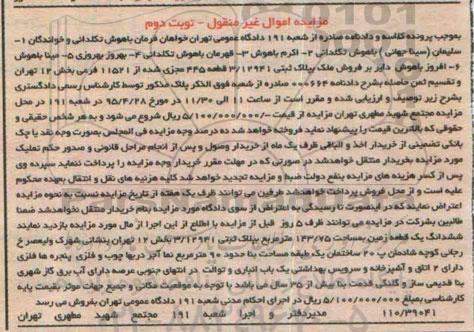 مزایده اموال غیر منقول - نوبت دوم
بموجب پرونده کلاسه و دادنامه صادره از شعبه ۱۹۱ دادگاه عمومی تهران خواهان فرمان باهوش تکلدانی و خواندگان ۱-
سلیمان (سینا جهانی) باهوش تکلدانی ۲- اکرم باهوش ۳- قهرمان باهوش تکلدانی ۴- بهروز بهروزی ۵- مینا باهوش
۶- افروز باهوش دایر بر فروش ملک پلاک ثبتی ۳/۱۲۹۴۱ قطعه ۴۴۵ مجزی شده از ۱۱۵۲۱ فرعی بخش ۱۲ تهران
و تقسیم ثمن حاصله بشرح دادنامه ۶۶۴ صادره از شعبه فوق الذکر پلاک مذکور توسط کارشناس رسمی دادگستری
بشرح زیر توصیف و ارزیابی شده و مقرر است از ساعت ۱۱ الی ۱۱/۳۰ در مورخ ۹۵/۴/۲۸ در شعبه ۱۹۱ در محل
مزایده مجتمع شهید مطهری تهران مزایده از قیمت ۵/۱۰۰/۰۰۰/۰۰۰ ریال شروع می شود و به هر شخص حقیقی و
حقوقی که بالاترین قیمت را پیشنهاد نماید فروخته خواهد شد ده درصد وجه مزایده فی المجلس بصورت وجه نقد یا چک
بانکی تضمینی از خریدار اخذ و الباقی ظرف یک ماه از خریدار وصول و پس از انجام مراحل قانونی و صدور حکم تملیک
مورد مزایده بخریدار منتقل خواهدشد در صورتی که در مهلت مقرر خریدار وجه مزایده را پرداخت ننماید سپرده وی
پس از کسر هزینه های مزایده بنفع دولت ضبط و مزایده تجدید خواهد شد کلیه هزینه های نقل و انتقال بعهده محکوم
علیه است و از محل فروش پرداخت خواهدشد طرفین می توانند ظرف یک هفته از تاریخ مزایده نسبت به نحوه مزایده
اعتراض نمایند که در اینصورت تا رسیدگی به اعتراض از سوی دادگاه مورد مزایده بنام خریدار منتقل نخواهدشد ضمنا
طالبین بشرکت در مزایده می توانند ظرف ۵ روز قبل از مزایده با اطلاع از این اجرا از مال مورد مزایده بازدید نمایند
ششدانگ یک قطعه زمین بمساحت ۱۴۳/۷۵ مترمربع بپلاک ثبتی ۳/۱۲۹۴۱ بخش ۱۲ تهران بنشانی شهرک ولیعصر خ
رجائی کوچه شادمان پ ۲۰ ساختمان یک طبقه مساحت بنا حدود ۹۰ مترمربع نما آجر دربها چوب و فلزی پنجره ها فلزی
دارای ۲ اتاق و آشپزخانه و سرویس بهداشتی یک باب انباری و توالت در انتهای جنوبی عرصه دارای آب برق گاز شهری
بنا قدیمی ساز و کلنگی قدمت بنا بیش از ۳۵ سال می باشد با توجه به موقعیت مکانی و جمیع جهات موثر بقیمت پایه
کارشناسی بمبلغ ۵/۱۰۰/۰۰۰/۰۰۰ ریال در اجرای احکام مدنی شعبه ۱۹۱ دادگاه عمومی تهران بفروش می رسد
۱۱۰/۳۹۰۴۱ مدیردفتر و اجرا شعبه ۱۹۱ مجتمع شهید مطهری تهران